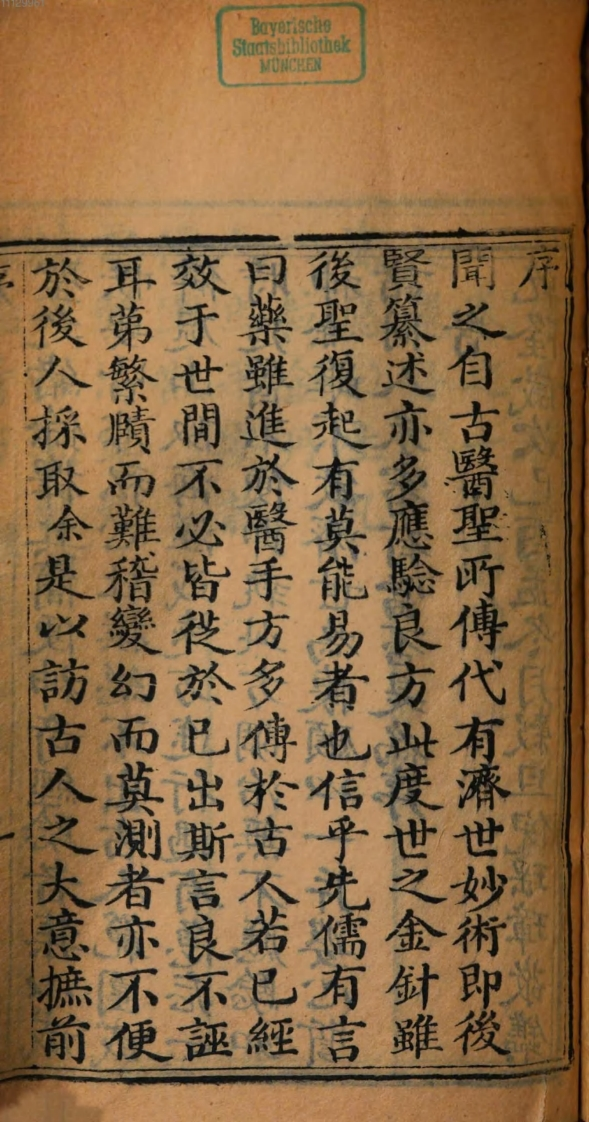 Bayerische
Staatsbibliothek
MÜNCHEN
序
聞之自古醫聖所傳代有濟世妙術即後
賢纂述亦多應驗良方此度世之金針雖
後聖復起有莫能易者也信乎先儒有言
曰藥雖進於醫手方多傳於古人若已經
效于世間不必皆從於已出斯言良不誣
耳苐繁賾而難稽變幻而莫測者亦不便
於後人採取余是以訪古人之大意摭前